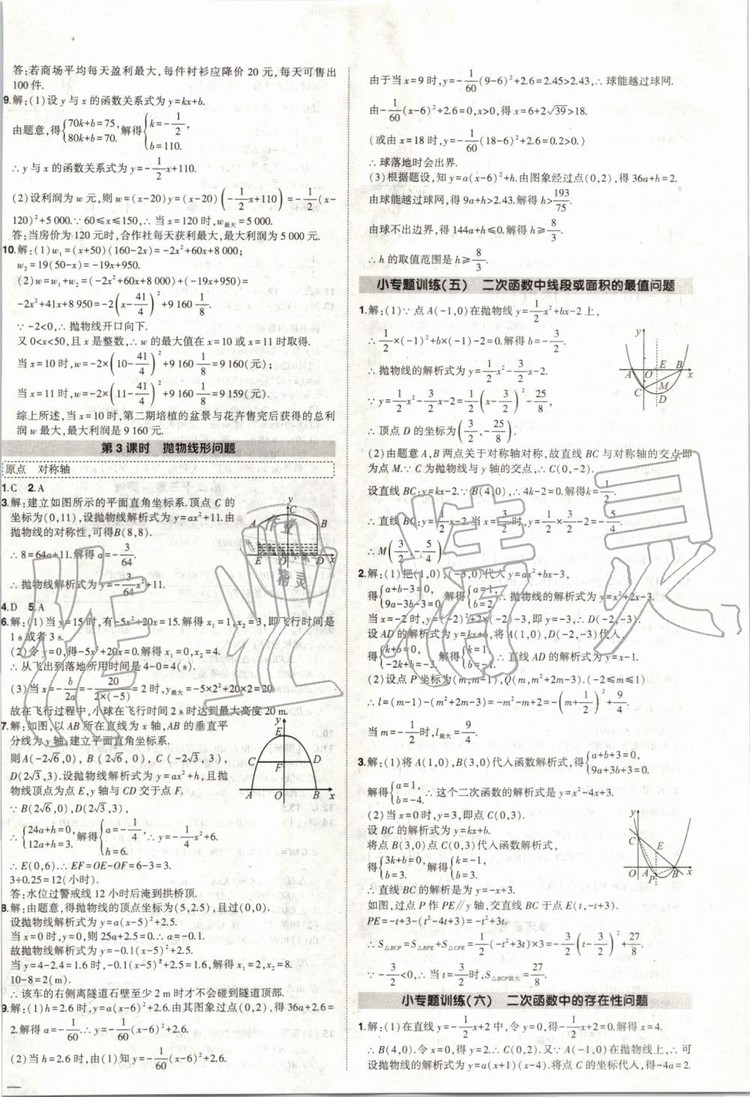 答:若商场平均每天盈利最大,每件衬衫应降价 20 元,每天可售出
100 件.
9.解:(1)设 y 与 x 的函数关系式为 y=kx+b.
由题意,得{70k+b=75, 80k+b=70. 解得{k=-1/2, b=110.
∴ y 与 x 的函数关系式为 y=-1/2x+110.
(2)设利润为 w 元,则 w=(x-20)y=(x-20)(-1/2x+110)=-1/2(x-
120)²+5 000.∵ 60≤x≤150,∴ 当 x=120 时,w最大=5 000.
答:当房价为 120 元时,合作社每天获利最大,最大利润为 5 000 元.
10.解:(1)w₁=(x+50)(160-2x)=-2x²+60x+8 000.
w₂=19(50-x)=-19x+950.
(2)w=w₁+w₂=(-2x²+60x+8 000)+(-19x+950)=
-2x²+41x+8 950=-2(x-41/4)²+9 160 1/8.
∵ -2<0,∴ 抛物线开口向下.
又 0<x<50,且 x 是整数,∴ w 的最大值在 x=10 或 x=11 时取得.
当 x=10 时,w=-2×(10-41/4)²+9 160 1/8=9 160(元);
当 x=11 时,w=-2×(11-41/4)²+9 160 1/8=9 159(元).
综上所述,当 x=10 时,第二期培植的盆景与花卉售完后获得的总利
润 w 最大,最大总利润是 9 160 元.
第 3 课时 抛物线形问题
原点 对称轴
1.C 2.A
3.解:建立如图所示的平面直角坐标系.顶点 C 的
坐标为(0,11),设抛物线解析式为 y=ax²+11.由
抛物线的对称性,可得B(8,8).
∴ 8=64a+11.解得 a=-3/64.
∴ 抛物线解析式为 y=-3/64x²+11.
4.D 5.A
6.解:(1)当 y=15 时,有-5x²+20x=15.解得 x₁=1,x₂=3,即飞行时间是
1 s 或者 3 s.
(2)令 y=0,得-5x²+20x=0.解得 x₁=0,x₂=4.
∴ 从飞出到落地所用时间是 4-0=4(s).
(3)当 x=-b/2a=-20/2×(-5)=2 时,y最大=-5×2²+20×2=20.
故在飞行过程中,小球在飞行时间 2 s 时达到最大高度 20 m.
7.解:如图,以 AB 所在直线为 x 轴,AB 的垂直平
分线为 y 轴,建立平面直角坐标系.
则A(-2√6,0),B(2√6,0),C(-2√3,3),
D(2√3,3).设抛物线解析式为 y=ax²+h,且抛
物线顶点为点 E,y 轴与 CD 交于点 F.
∵ B(2√6,0),D(2√3,3),
∴ {24a+h=0, 12a+h=3. 解得{a=-1/4, h=6. ∴ y=-1/4x²+6.
∴ E(0,6).∴ EF=OE-OF=6-3=3.
3÷0.25=12(小时).
答:水位过警戒线 12 小时后淹到拱桥顶.
8.解:由题意,得抛物线的顶点坐标为(5,2.5),且过(0,0).
设抛物线解析式为 y=a(x-5)²+2.5.
当 x=0 时,y=0,则 25a+2.5=0.∴ a=-0.1.
故抛物线解析式为 y=-0.1(x-5)²+2.5.
当 y=4-2.4=1.6 时,-0.1(x-5)²+2.5=1.6.解得 x₁=8,x₂=2.
10-8=2(m).
∴ 该车的右侧离隧道石壁至少 2 m 时才不会碰到隧道顶部.
9.解:(1)当 h=2.6 时,y=a(x-6)²+2.6.由其图象过点(0,2),得 36a+
2.6=2.解得 a=-1/60.∴ y=-1/60(x-6)²+2.6.
(2)当 h=2.6 时,由(1)知 y=-1/60(x-6)²+2.6.
由于当 x=9 时,y=-1/60(9-6)²+2.6=2.45>2.43,∴ 球能越过球网.
由-1/60(x-6)²+2.6=0,x>0,得 x=6+2√39>18.
(或由 x=18 时,y=-1/60(18-6)²+2.6=0.2>0.)
∴ 球落地时会出界.
(3)根据题设,知 y=a(x-6)²+h.由图象经过点(0,2),得 36a+h=2.
由球能越过球网,得 9a+h>2.43.解得 h>193/75.
由球不出边界,得 144a+h≤0.解得 h≥8/3.
∴ h 的取值范围是 h≥8/3.
小专题训练(五) 二次函数中线段或面积的最值问题
1.解:(1)∵ 点 A(-1,0)在抛物线 y=1/2x²+bx-2 上,
∴ 1/2×(-1)²+b×(-1)-2=0.解得b=-3/2.
∴ 抛物线的解析式为 y=1/2x²-3/2x-2.
∵ y=1/2x²-3/2x-2=1/2(x-3/2)²-25/8,
∴ 顶点 D 的坐标为(3/2,-25/8).
(2)由题意知,点 A,B 关于对称轴对称,故直线 BC 与对称轴的交点即
为点 M.∵ C 为抛物线与 y 轴的交点,∴ C(0,-2).
设直线 BC:y=kx-2.∵ B(4,0),∴ 4k-2=0,k=1/2.
∴ 直线 BC:y=1/2x-2.当 x=3/2时,y=1/2×3/2-2=-5/4.
∴ M(3/2,-5/4).
2.解:(1)把(1,0),(-3,0)代入 y=ax²+bx-3,
得{a+b-3=0, 9a-3b-3=0. 解得{a=1, b=2. ∴ 抛物线的解析式为 y=x²+2x-3.
当 x=-2 时,y=(-2)²+2×(-2)-3,即 y=-3.∴ D(-2,-3).
设 AD 的解析式为 y=kx+h,将 A(1,0),D(-2,-3)代入,
得{k+h=0, -2k+h=-3. 解得{k=1, h=-1. ∴ 直线 AD 的解析式为 y=x-1.
(2)设点 P 坐标为(m,m-1),Q(m,m²+2m-3).(-2≤m≤1)
∴ l=(m-1)-(m²+2m-3)=-m²-m+2=-(m+1/2)²+9/4.
当 m=-1/2时,l最大=9/4.
3.解:(1)将 A(1,0),B(3,0)代入函数解析式,得{a+b+3=0, 9a+3b+3=0.
解得{a=1, b=-4. ∴ 这个二次函数的解析式是 y=x²-4x+3.
(2)当 x=0 时,y=3,即点 C(0,3).
设 BC 的解析式为 y=kx+b.
将点 B(3,0)点 C(0,3)代入函数解析式,
得{3k+b=0, b=3. 解得{k=-1, b=3.
∴ 直线 BC 的解析是为 y=-x+3.
过点 P 作 PE∥y 轴,交直线 BC 于点 E(t,-t+3).
PE=-t+3-(t²-4t+3)=-t²+3t.
∴ S△BCP=S△BPE+S△CPE=1/2(-t²+3t)×3=-3/2(t-3/2)²+27/8.
∵ -3/2<0,∴ 当 t=3/2时,S△BCP最大=27/8.
小专题训练(六) 二次函数中的存在性问题
1.解:(1)在直线 y=-1/2x+2 中,令 y=0,得-1/2x+2=0.解得 x=4.
∴ B(4,0).令 x=0,得 y=2.∴ C(0,2).又∵ A(-1,0)在抛物线上,∴ 可
设抛物线的解析式为 y=a(x+1)(x-4).将点 C 的坐标代入,得-4a=2.